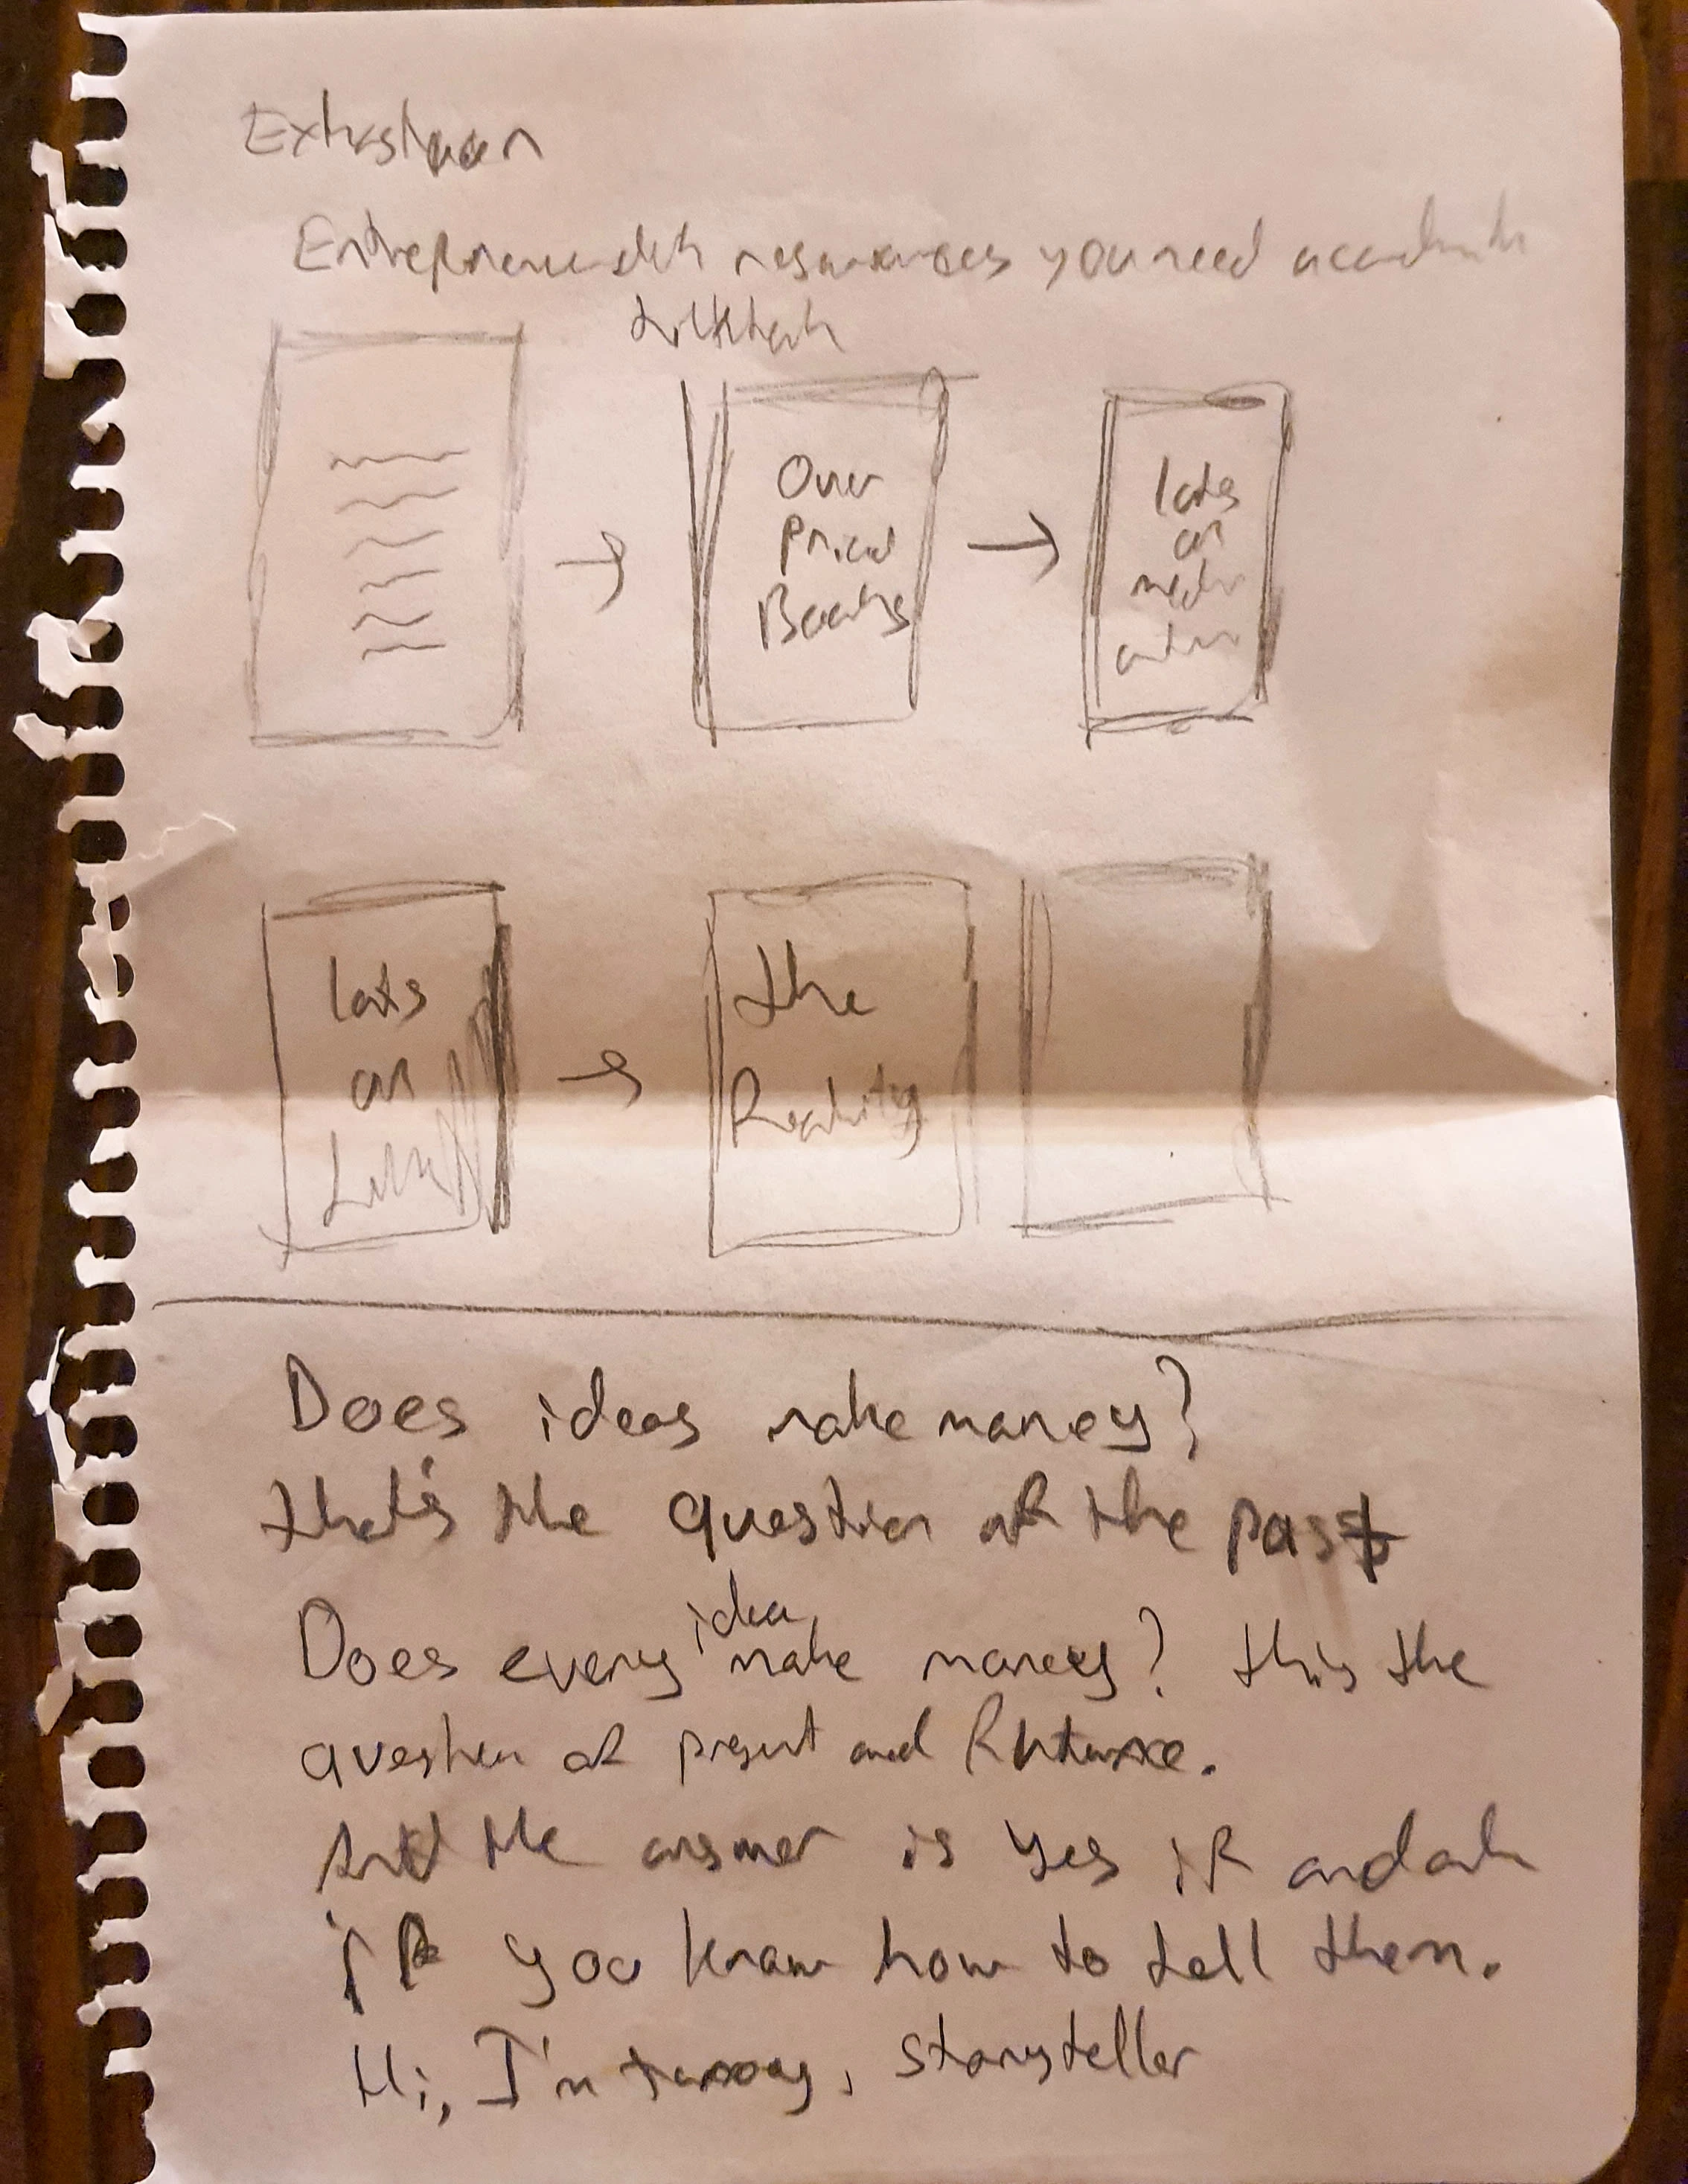 resources you need
Over
Priced
Books
lots
of
lots
of
the
Reality
Does ideas make money?
that's the question of the past
idea
Does every make money? this the
question of present and future.
And the answer is yes if and only
if you know how to tell them.
Hi, I'm storyteller